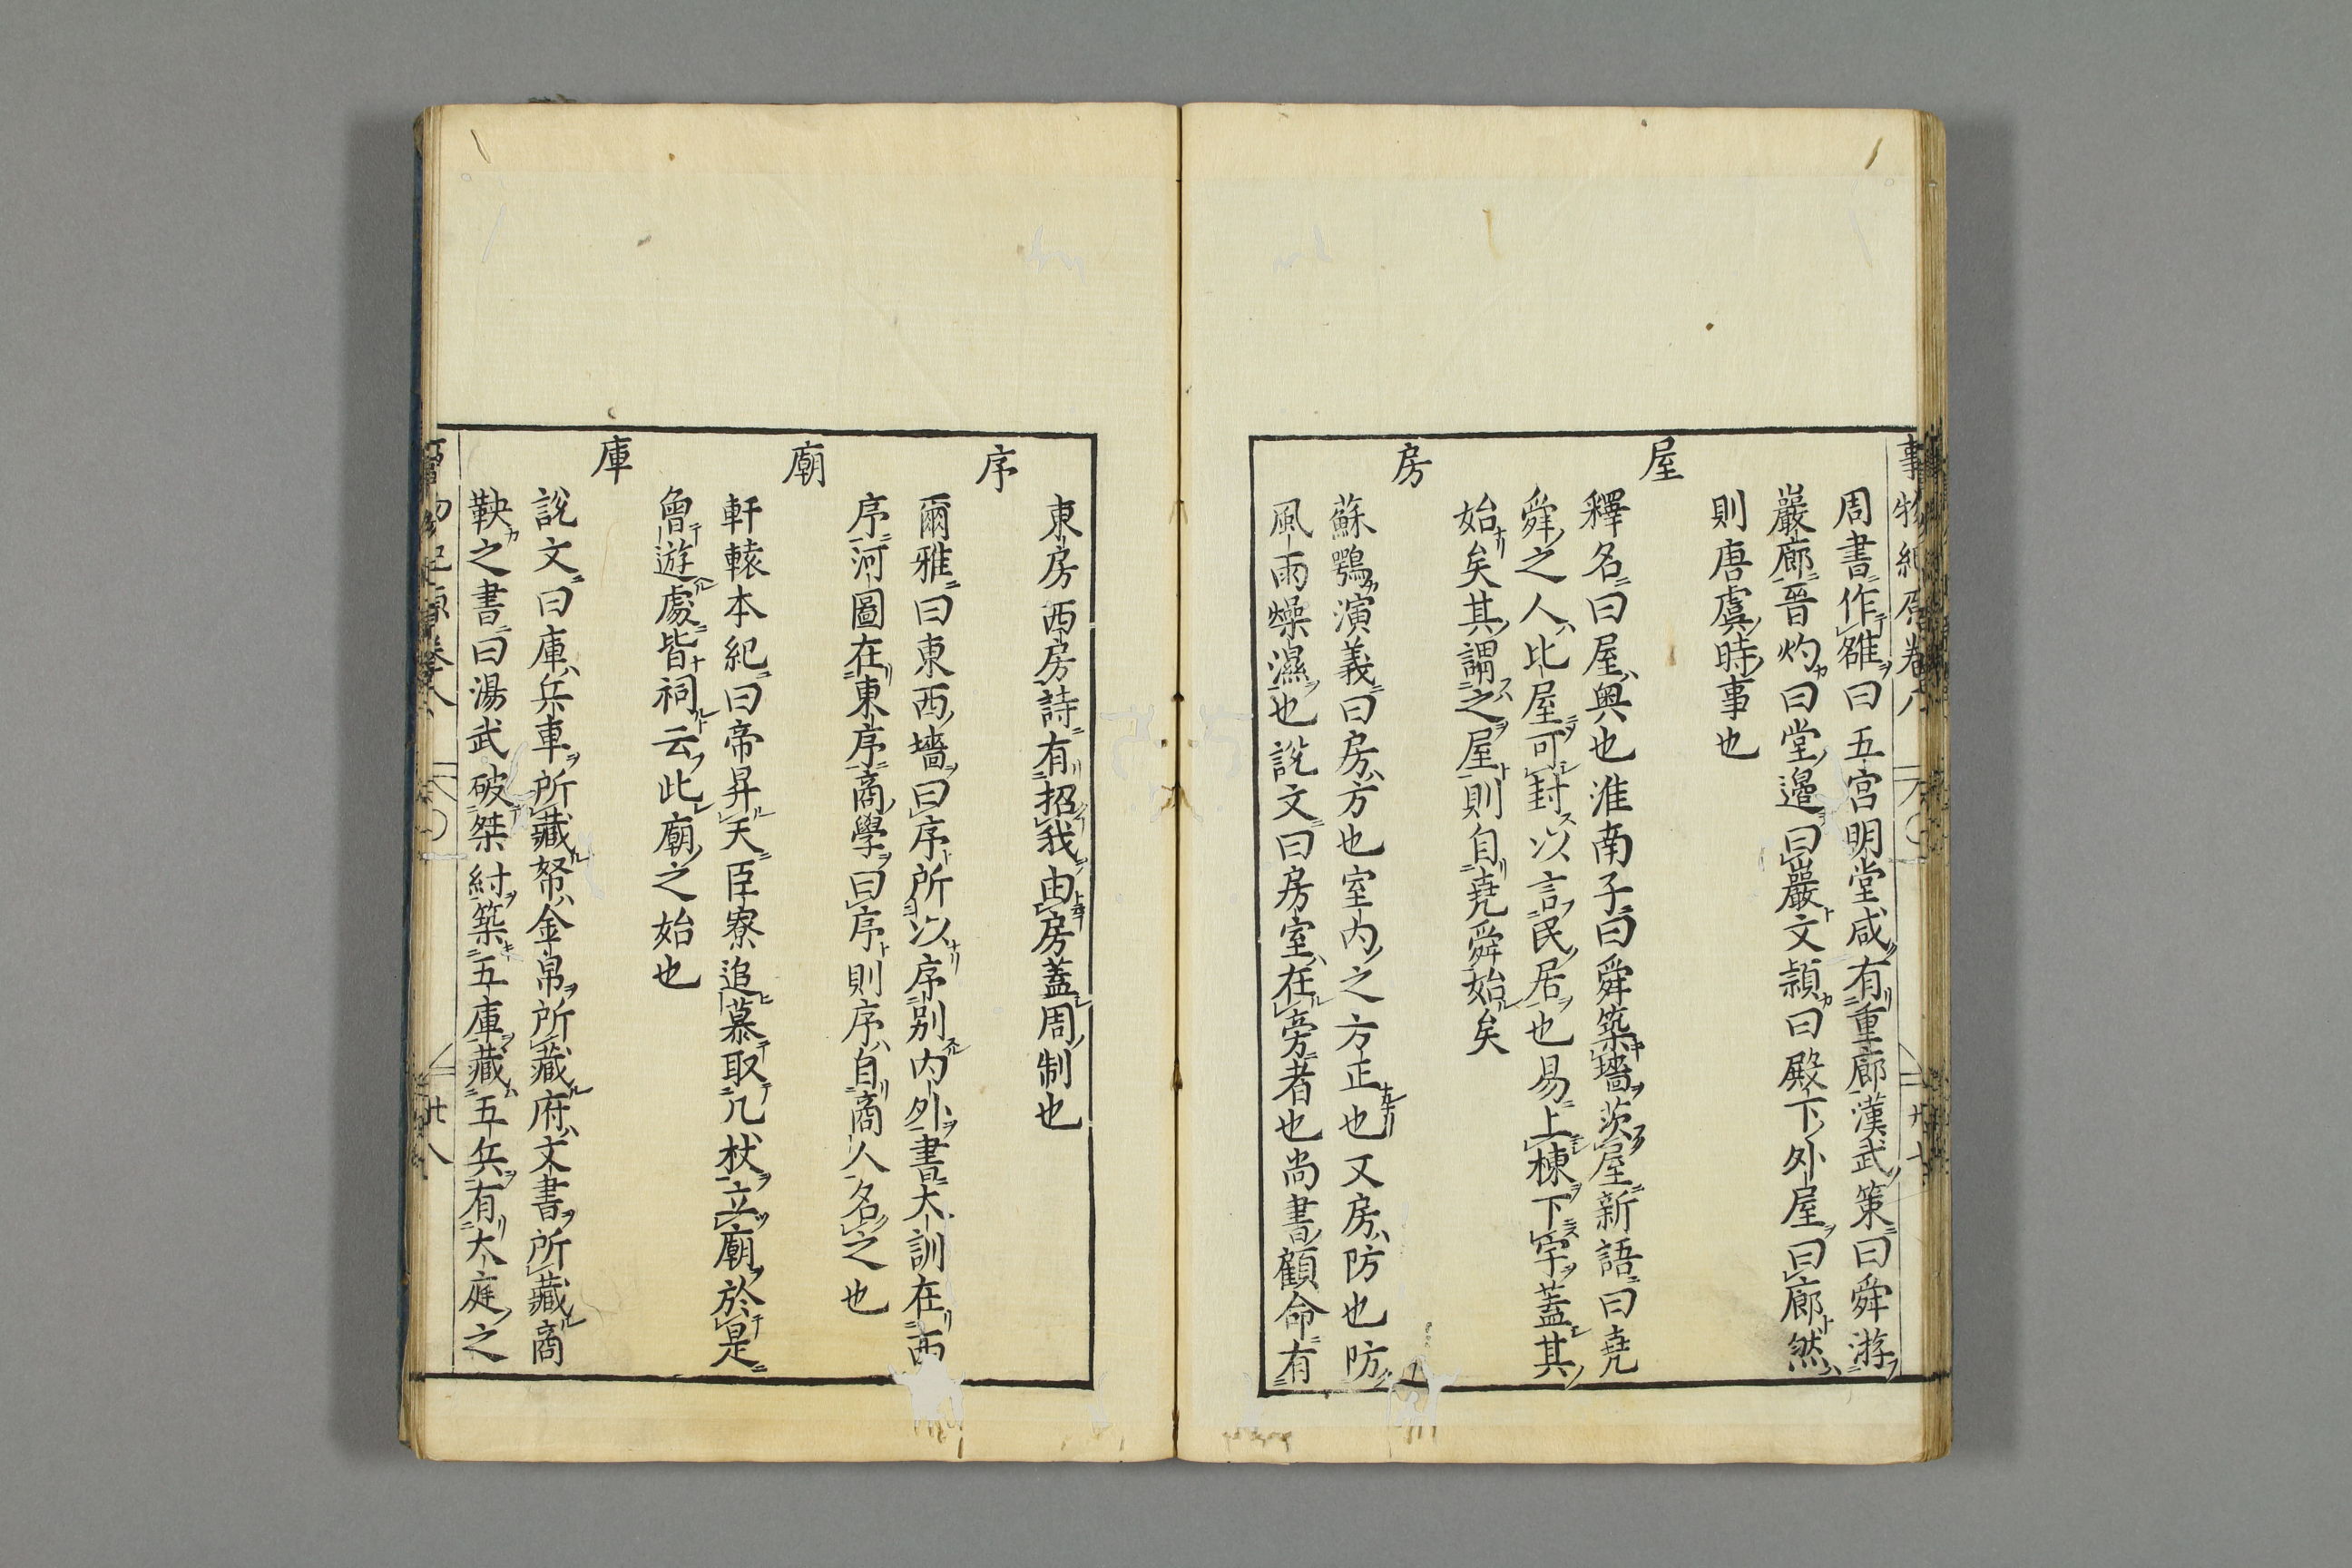 事物紀原卷八
周書作雒曰五宮明堂咸有重廊漢武策曰舜游
巖廊晉灼曰堂邉曰巖文穎曰殿下外屋曰廊然
則唐虞時事也
屋
釋名曰屋奧也淮南子曰舜築墻茨屋新語曰堯
舜之人比屋可封以言民居也易上棟下宇蓋其
始矣其謂之屋則自堯舜始矣
房
蘇鶚演義曰房方也室内之方正也又房防也防
風雨燥濕也説文曰房室在旁者也尚書顧命有
東房西房詩有招我由房蓋周制也
序
爾雅曰東西墻曰序所以序别内外書大訓在西
序河圖在東序商學曰序則序自商人名之也
廟
軒轅本紀曰帝昇天臣寮追慕取几杖立廟於是
曾遊處皆祠云此廟之始也
庫
説文曰庫兵車所藏帑金帛所藏府文書所藏商
鞅之書曰湯武破桀紂築五庫藏五兵有大庭之
卷八
廿八